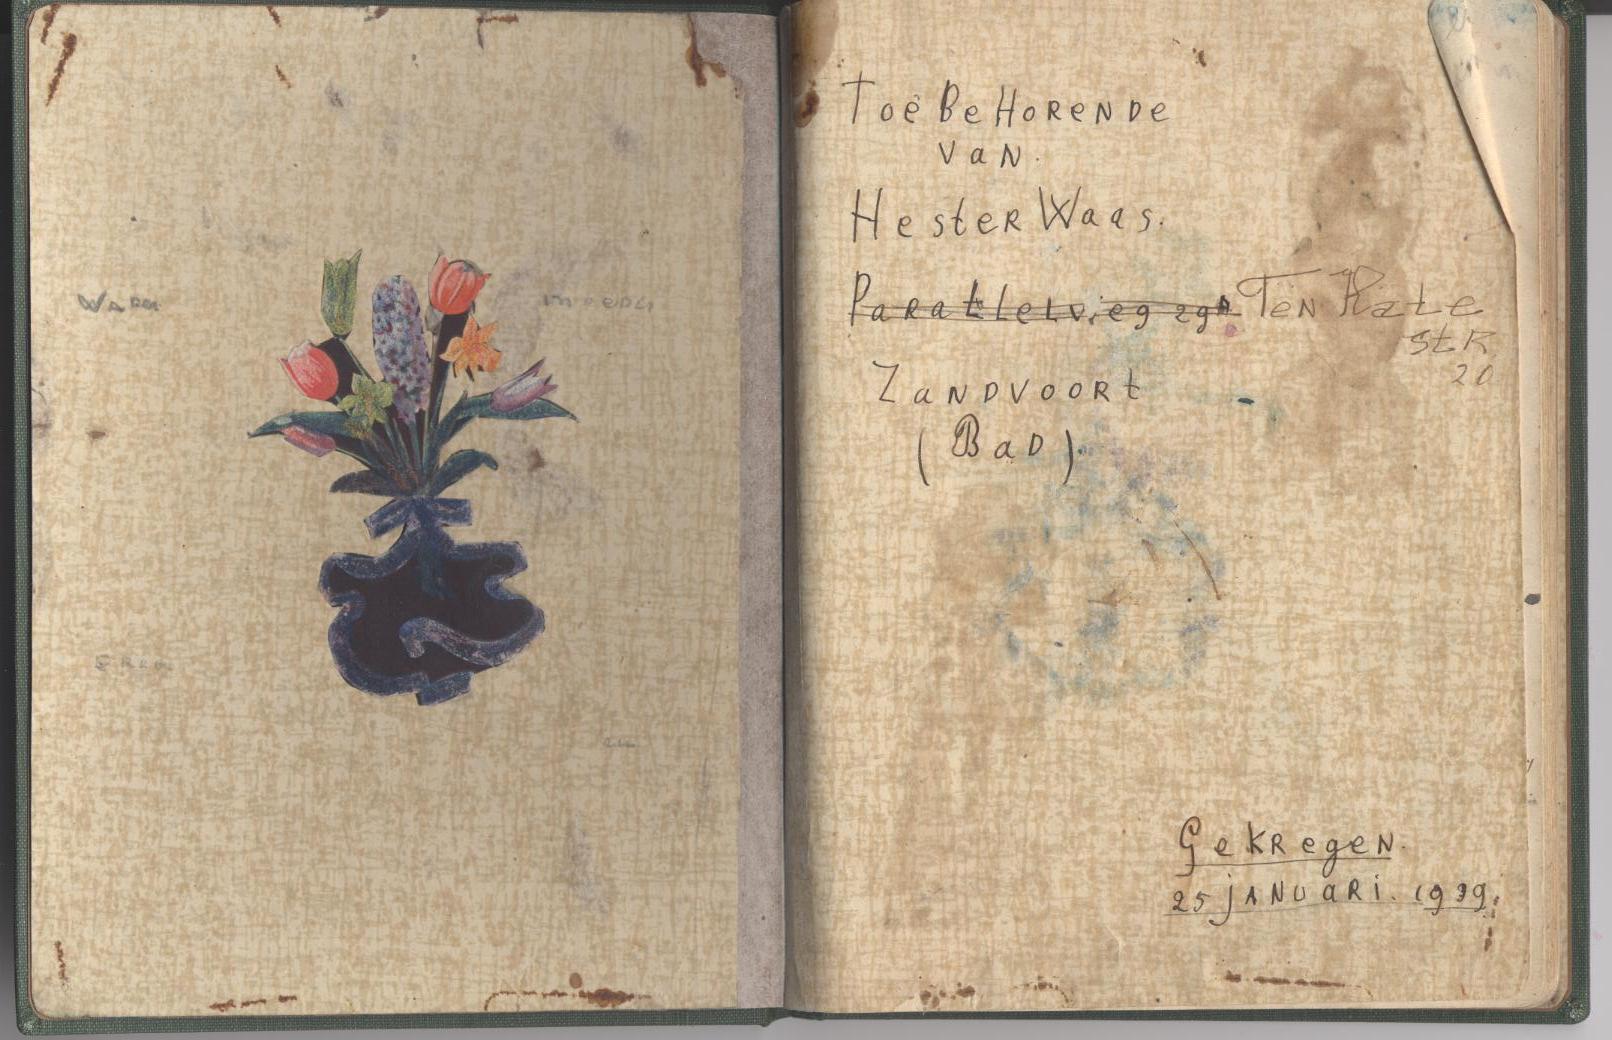 ToeBeHoReNDe
VaN.
HesteR Waas.
PaRaLLeLweg 29A Ten Kate
stR
20
ZaNDVOORt
(BaD).
GeKRegeN.
25 jaNUaRi. 1939.